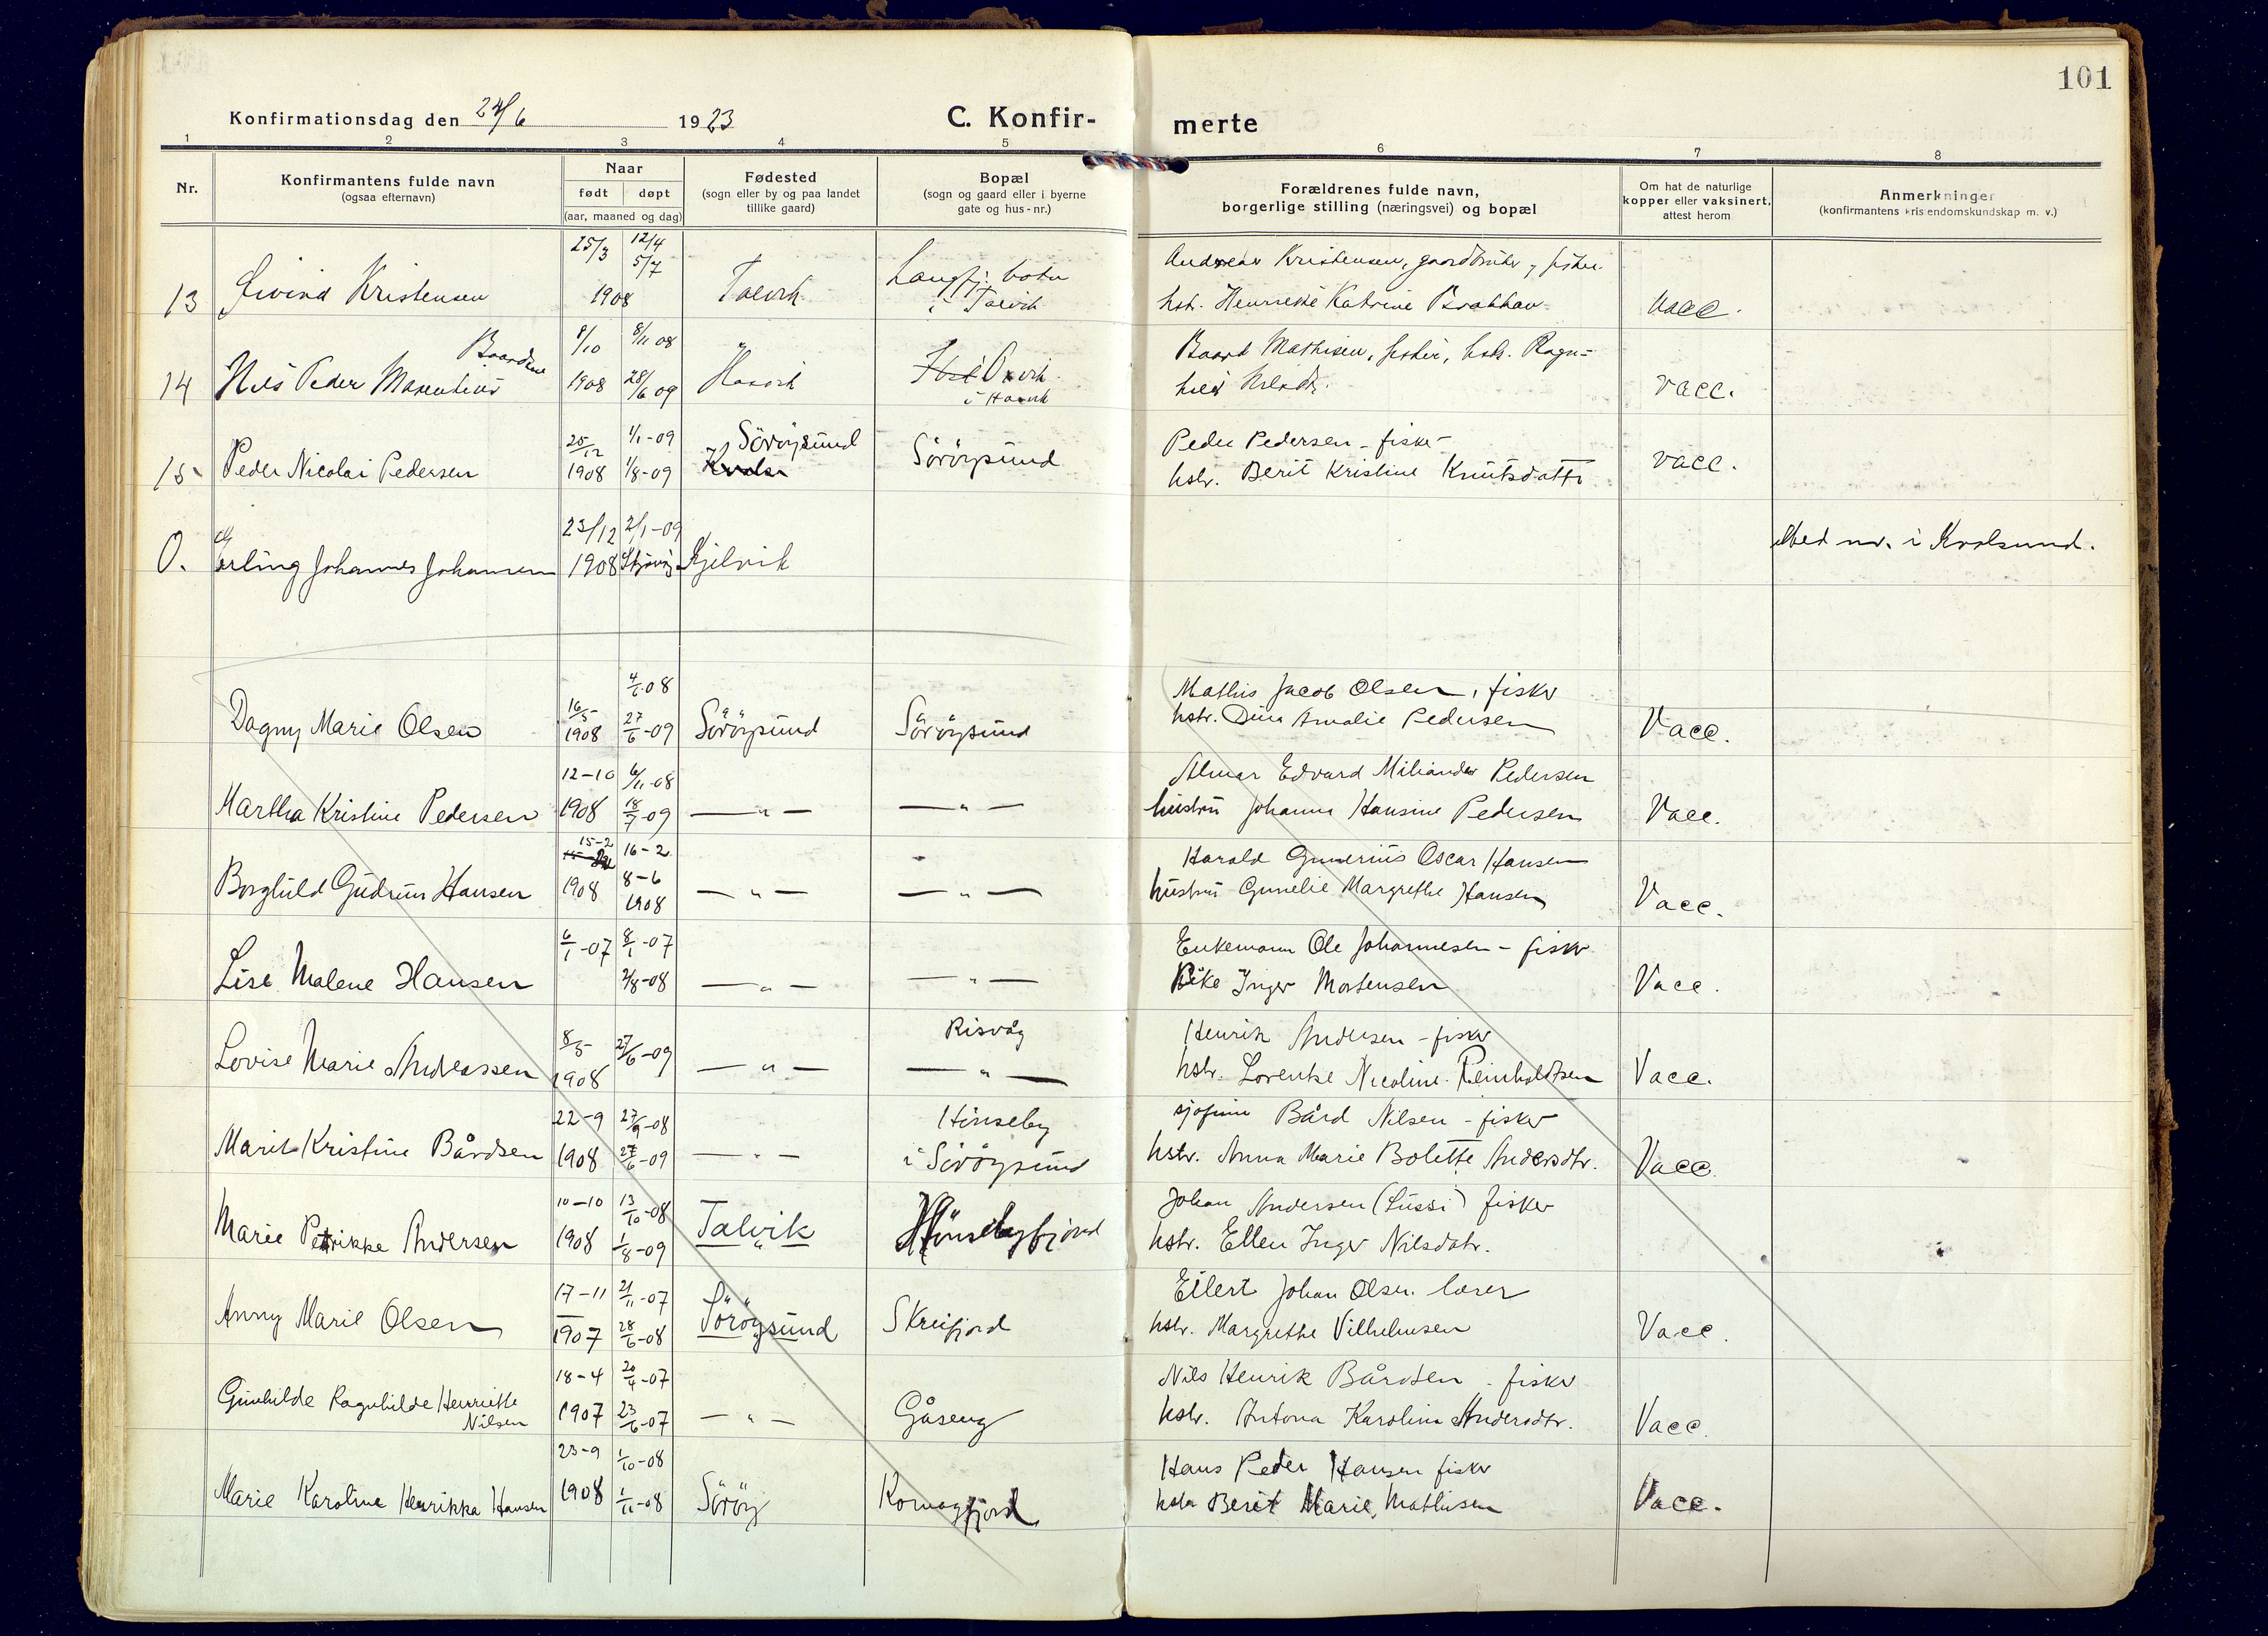 101
Konfirmationsdag den 24/6 1923 C. Konfir- merte
1 2 3 4 5 6 7 8
Nr. Konfirmantens fulde navn (ogsaa efternavn) Naar født døpt (aar, maaned og dag) Fødested (sogn eller by og paa landet tillike gaard) Bopæl (sogn og gaard eller i byerne gate og hus-nr.) Forældrenes fulde navn, borgerlige stilling (næringsvei) og bopæl Om hat de naturlige kopper eller vaksinert, attest herom Anmerkninger (konfirmantens kristendomskundskap m. v.)
25/3 12/4 5/7 Andreas Kristensen, gaardbruker,
13 Eivind Kristensen 1908 Talvik Langfj.botn i Talvik hstr. Katrine vacc.
Baardsen 9/10 8/11 08 Baard Mathisen, fisker, hstr. Ragn-
14 Nils Peder 1908 28/6 09 Hasvik i Hasvik hild vacc.
25/12 1/1-09 Söröysund Peder Pedersen - fisker
15 Peder Nicolai Pedersen 1908 1/8-09 Söröysund hstr. Berit Kristine Knutsdattr vacc.
23/12 2/1-09
0. Erling Johannes Johansen 1908 Kjelvik Med nr. i Kvalsund.
4/6 08 Mathis Jacob Olsen, fisker
Dagny Marie Olsen 16/5 1908 27/6-09 Söröysund Söröysund hstr. Dina Amalie Pedersen Vacc.
12-10 6/11-08 Almar Edvard Miliander Pedersen
Martha Kristine Pedersen 1908 18/7-09 — " — — " — hustru Johanna Hansine Pedersen Vacc.
15-2 16-2 Harald Gunerius Oscar Hansen
Borghild Gudrun Hansen 1908 8-6 1908 — " — — " — hustru Gunelie Margrethe Hansen Vacc.
6/1-07 8/1-07 Enkemann Ole Johannesen - fisker
Lise Malene Hansen 2/8-08 — " — — " — Pike Inger Mortensen Vacc.
8/5 27/6-09 Risvåg Henrik Andersen - fisker
Lovise Marie Andreassen 1908 — " — — " — hstr. Lorentse Nicoline Reinholdtsen Vacc.
22-9 27/9-08 Hönseby sjøfinn Bård Nilsen - fisker
Marit Kristine Bårdsen 1908 27/6-09 — " — i Söröysund hstr. Anna Marie Bolette Andersdtr. Vacc.
10-10 13/10-08 Johan Andersen (Lussi) fisker
Marie Petrikke Andersen 1908 1/8-09 Talvik Hönsebyfjord hstr. Ellen Inger Nilsdatr.
17-11 21/11-07 Eilert Johan Olsen lærer
Anny Marie Olsen 1907 28/6-08 Söröysund Skreifjord hstr. Margrethe Vilhelmsen Vacc.
18-4 20/4-07 Nils Henrik Bårdsen - fisker
Gunhilde Ragnhilde Henriette Nilsen 1907 23/6-07 — " — Gåseng hstr. Antona Karolina Andersdtr. Vacc.
23-9 1/10-08 Hans Peder Hansen fisker
Marie Karoline Henrikka Hansen 1908 1/11-08 Söröy Komagfjord hstr Berit Marie Mathisen Vacc.